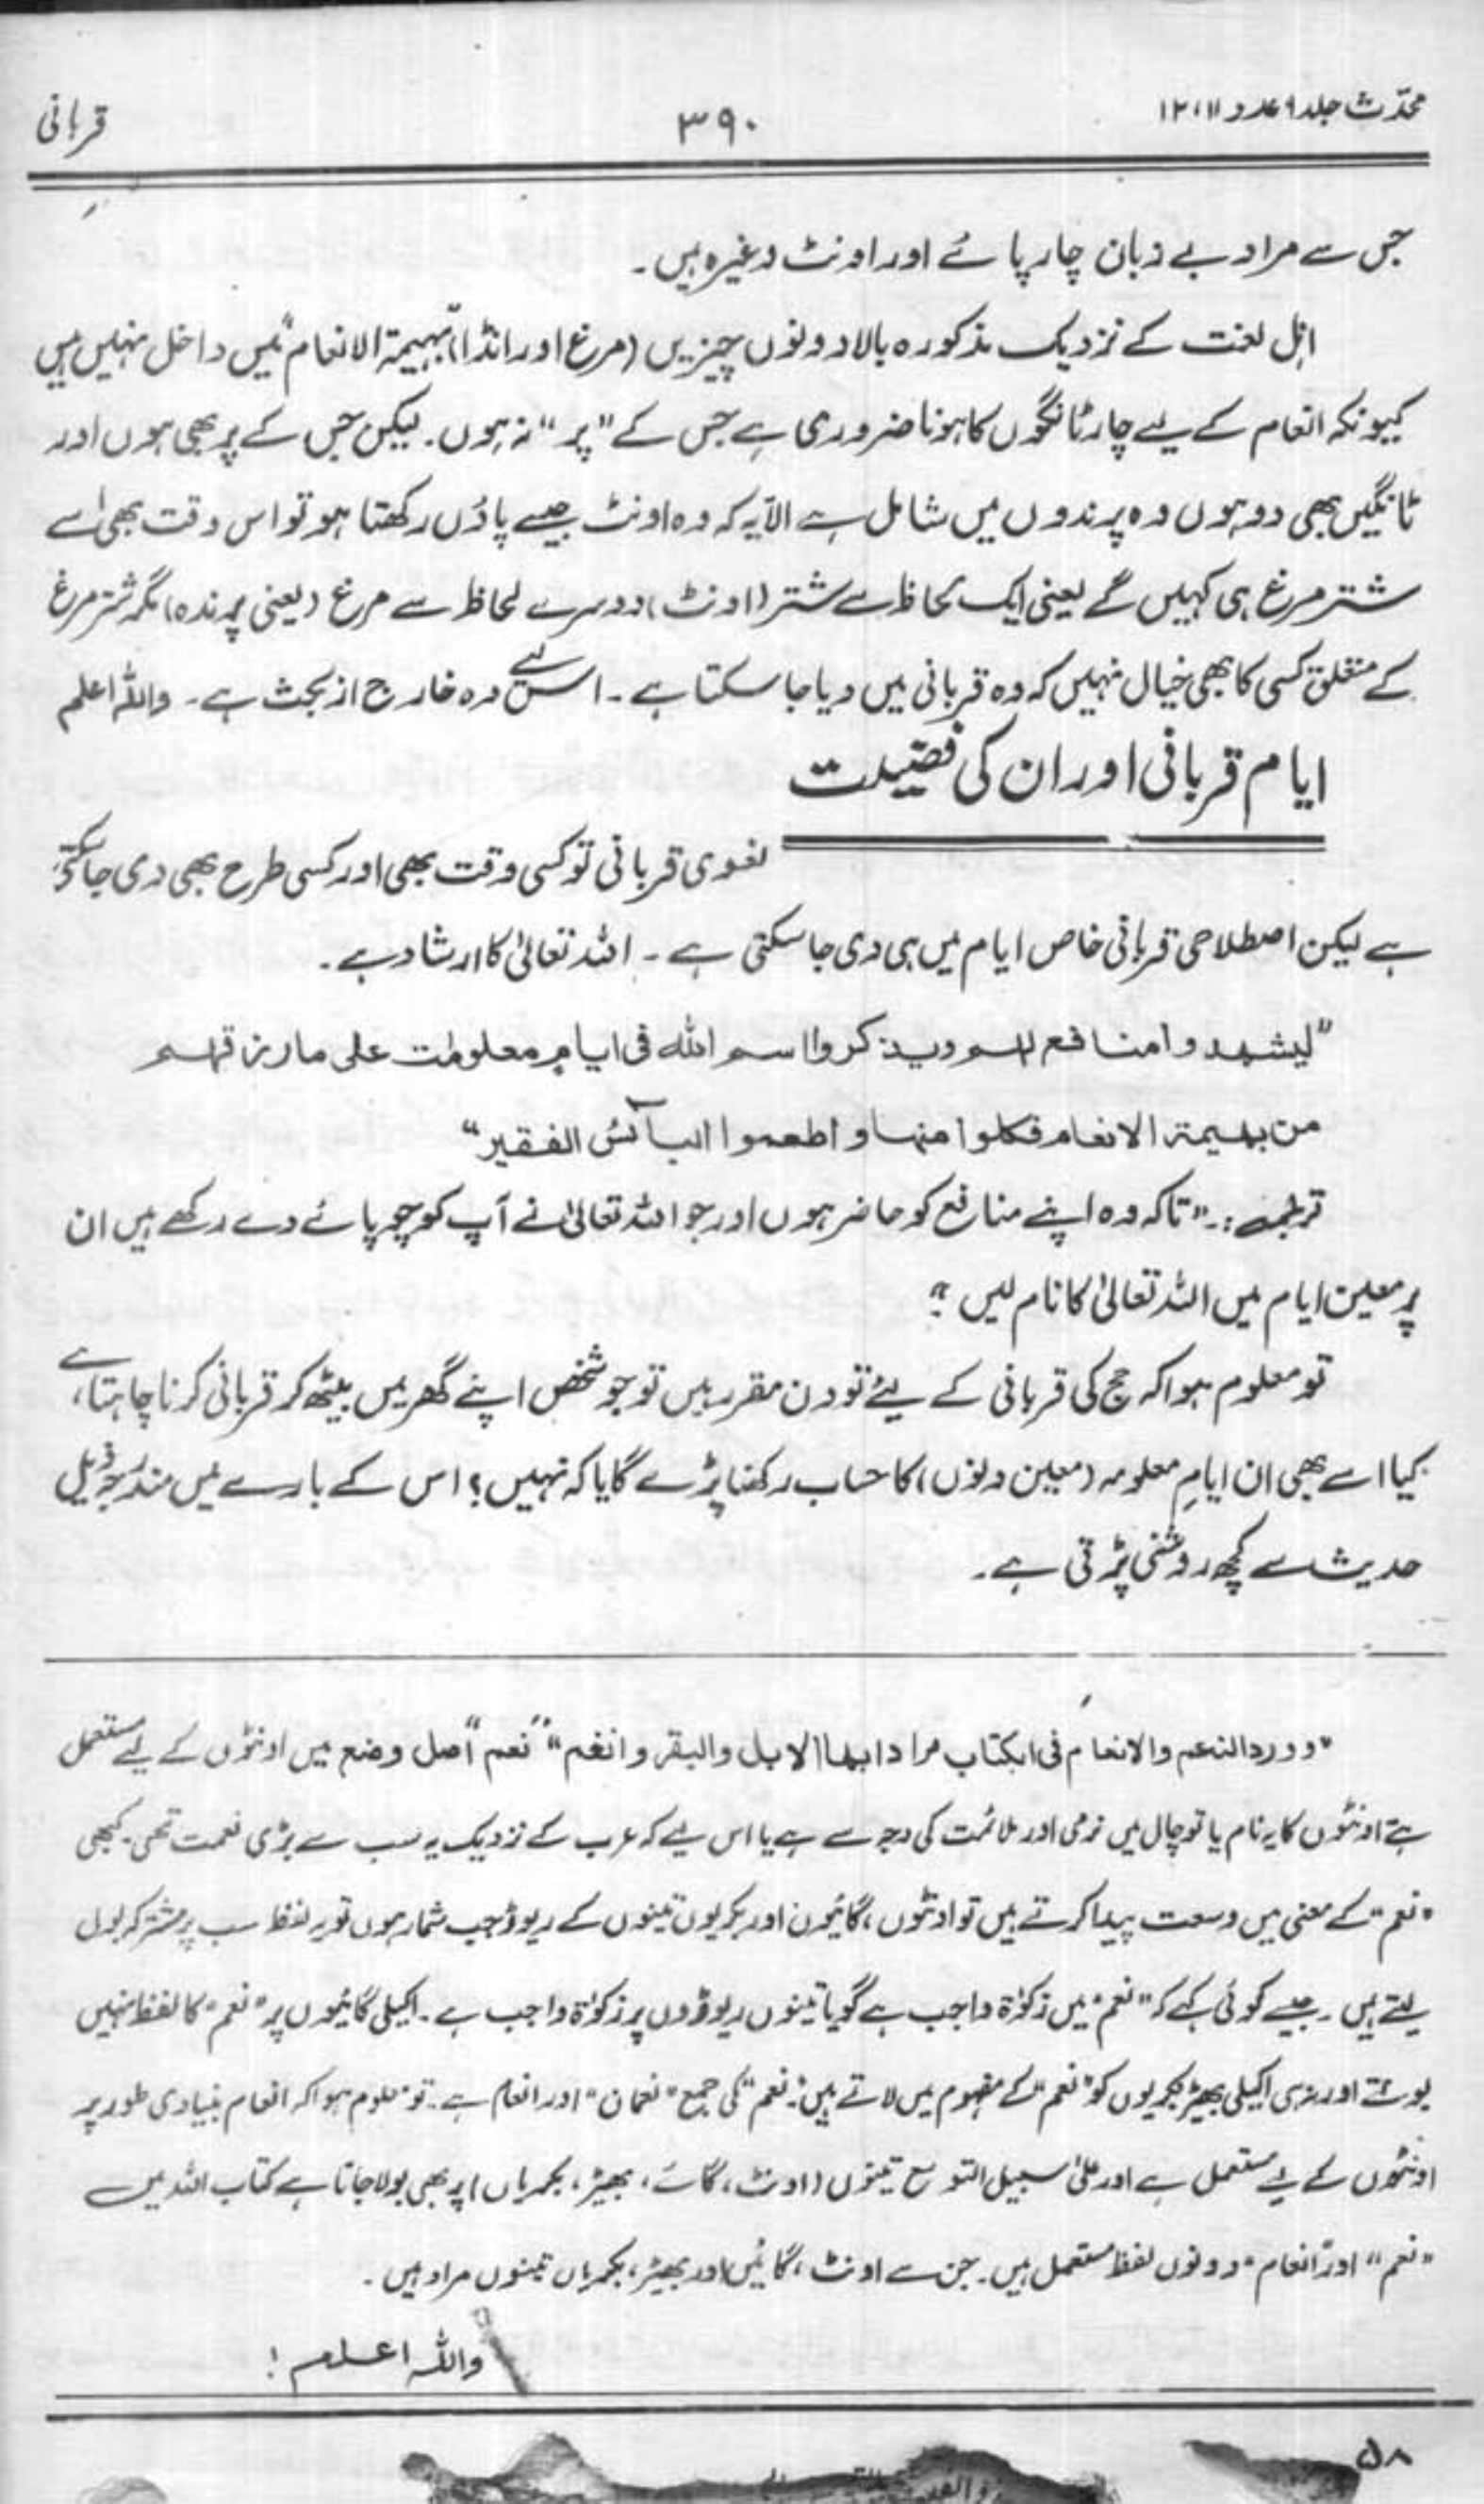 محدّث جلد ۹ عدد ۱۲،۱۱
۳۹۰
قربانی
جس سے مراد بے زبان چارپائے اور اونٹ وغیرہ ہیں۔
اہل لغت کے نزدیک مذکورہ بالا دونوں چیزیں (مرغ اور انڈا) "بہیمۃ الانعام" میں داخل نہیں ہیں
کیونکہ انعام کے لیے چار ٹانگوں کا ہونا ضروری ہے جس کے "پر" نہ ہوں۔ لیکن جس کے پر بھی ہوں اور
ٹانگیں بھی دو ہوں وہ پرندوں میں شامل ہے الاّ یہ کہ وہ اونٹ جیسے پاؤں رکھتا ہو تو اس وقت بھی اسے
شتر مرغ ہی کہیں گے یعنی ایک لحاظ سے شتر (اونٹ) دوسرے لحاظ سے مرغ (یعنی پرندہ) مگر شتر مرغ
کے متعلق کسی کا بھی خیال نہیں کہ وہ قربانی میں دیا جا سکتا ہے۔ اس لیے وہ خارج از بحث ہے۔ واللہ اعلم
ایام قربانی اور ان کی فضیلت
لغوی قربانی تو کسی وقت بھی اور کسی طرح بھی دی جا سکتی
ہے لیکن اصطلاحی قربانی خاص ایام میں ہی دی جا سکتی ہے۔ اللہ تعالیٰ کا ارشاد ہے۔
"لیشهدوا منافع لهم ویذکروا اسم الله فی ایام معلومٰت علی ما رزقهم
من بهیمة الانعام فکلوا منها و اطعموا البآئس الفقیر"
ترجمہ:۔ "تاکہ وہ اپنے منافع کو حاضر ہوں اور جو اللہ تعالیٰ نے آپ کو چوپائے دے رکھے ہیں ان
پر معین ایام میں اللہ تعالیٰ کا نام لیں"
تو معلوم ہوا کہ حج کی قربانی کے لیئے تو دن مقرر ہیں تو جو شخص اپنے گھر میں بیٹھ کر قربانی کرنا چاہتا ہے،
کیا اسے بھی ان ایامِ معلومہ (معین دنوں) کا حساب رکھنا پڑے گا یا کہ نہیں؟ اس کے بارے میں مندرجہ ذیل
حدیث سے کچھ روشنی پڑتی ہے۔
"وورد النعم والانعام فی الکتاب مرادا بها الابل والبقر وانغم" "نعم" اصل وضع میں اونٹوں کے لیے مستعمل
ہے اونٹوں کا یہ نام یا تو چال میں نرمی اور ملائمت کی وجہ سے ہے یا اس لیے کہ عرب کے نزدیک یہ سب سے بڑی نعمت تھی۔ کبھی
"نعم" کے معنی میں وسعت پیدا کرتے ہیں تو اونٹوں، گائیوں اور بکریوں تینوں کے ریوڑ جب شمار ہوں تو یہ لفظ سب پر مشترکہ بول
لیتے ہیں۔ جیسے کوئی کہے کہ "نعم" میں زکوٰۃ واجب ہے گویا تینوں ریوڑوں پر زکوٰۃ واجب ہے۔ اکیلی گائیوں پر "نعم" کا لفظ نہیں
بولتے اور نہ ہی اکیلی بھیڑ بکریوں کو "نعم" کے مفہوم میں لاتے ہیں۔ "نعم" کی جمع "نعمان" اور انعام ہے۔ تو معلوم ہوا کہ انعام بنیادی طور پر
اونٹوں کے لیے مستعمل ہے اور علیٰ سبیل التوسع تینوں (اونٹ، گائے، بھیڑ، بکریاں) پر بھی بولا جاتا ہے کتاب اللہ میں
"نعم" اور "انعام" دونوں لفظ مستعمل ہیں۔ جن سے اونٹ، گائیں اور بھیڑ، بکریاں تینوں مراد ہیں۔
واللہ اعلم!
۵۸